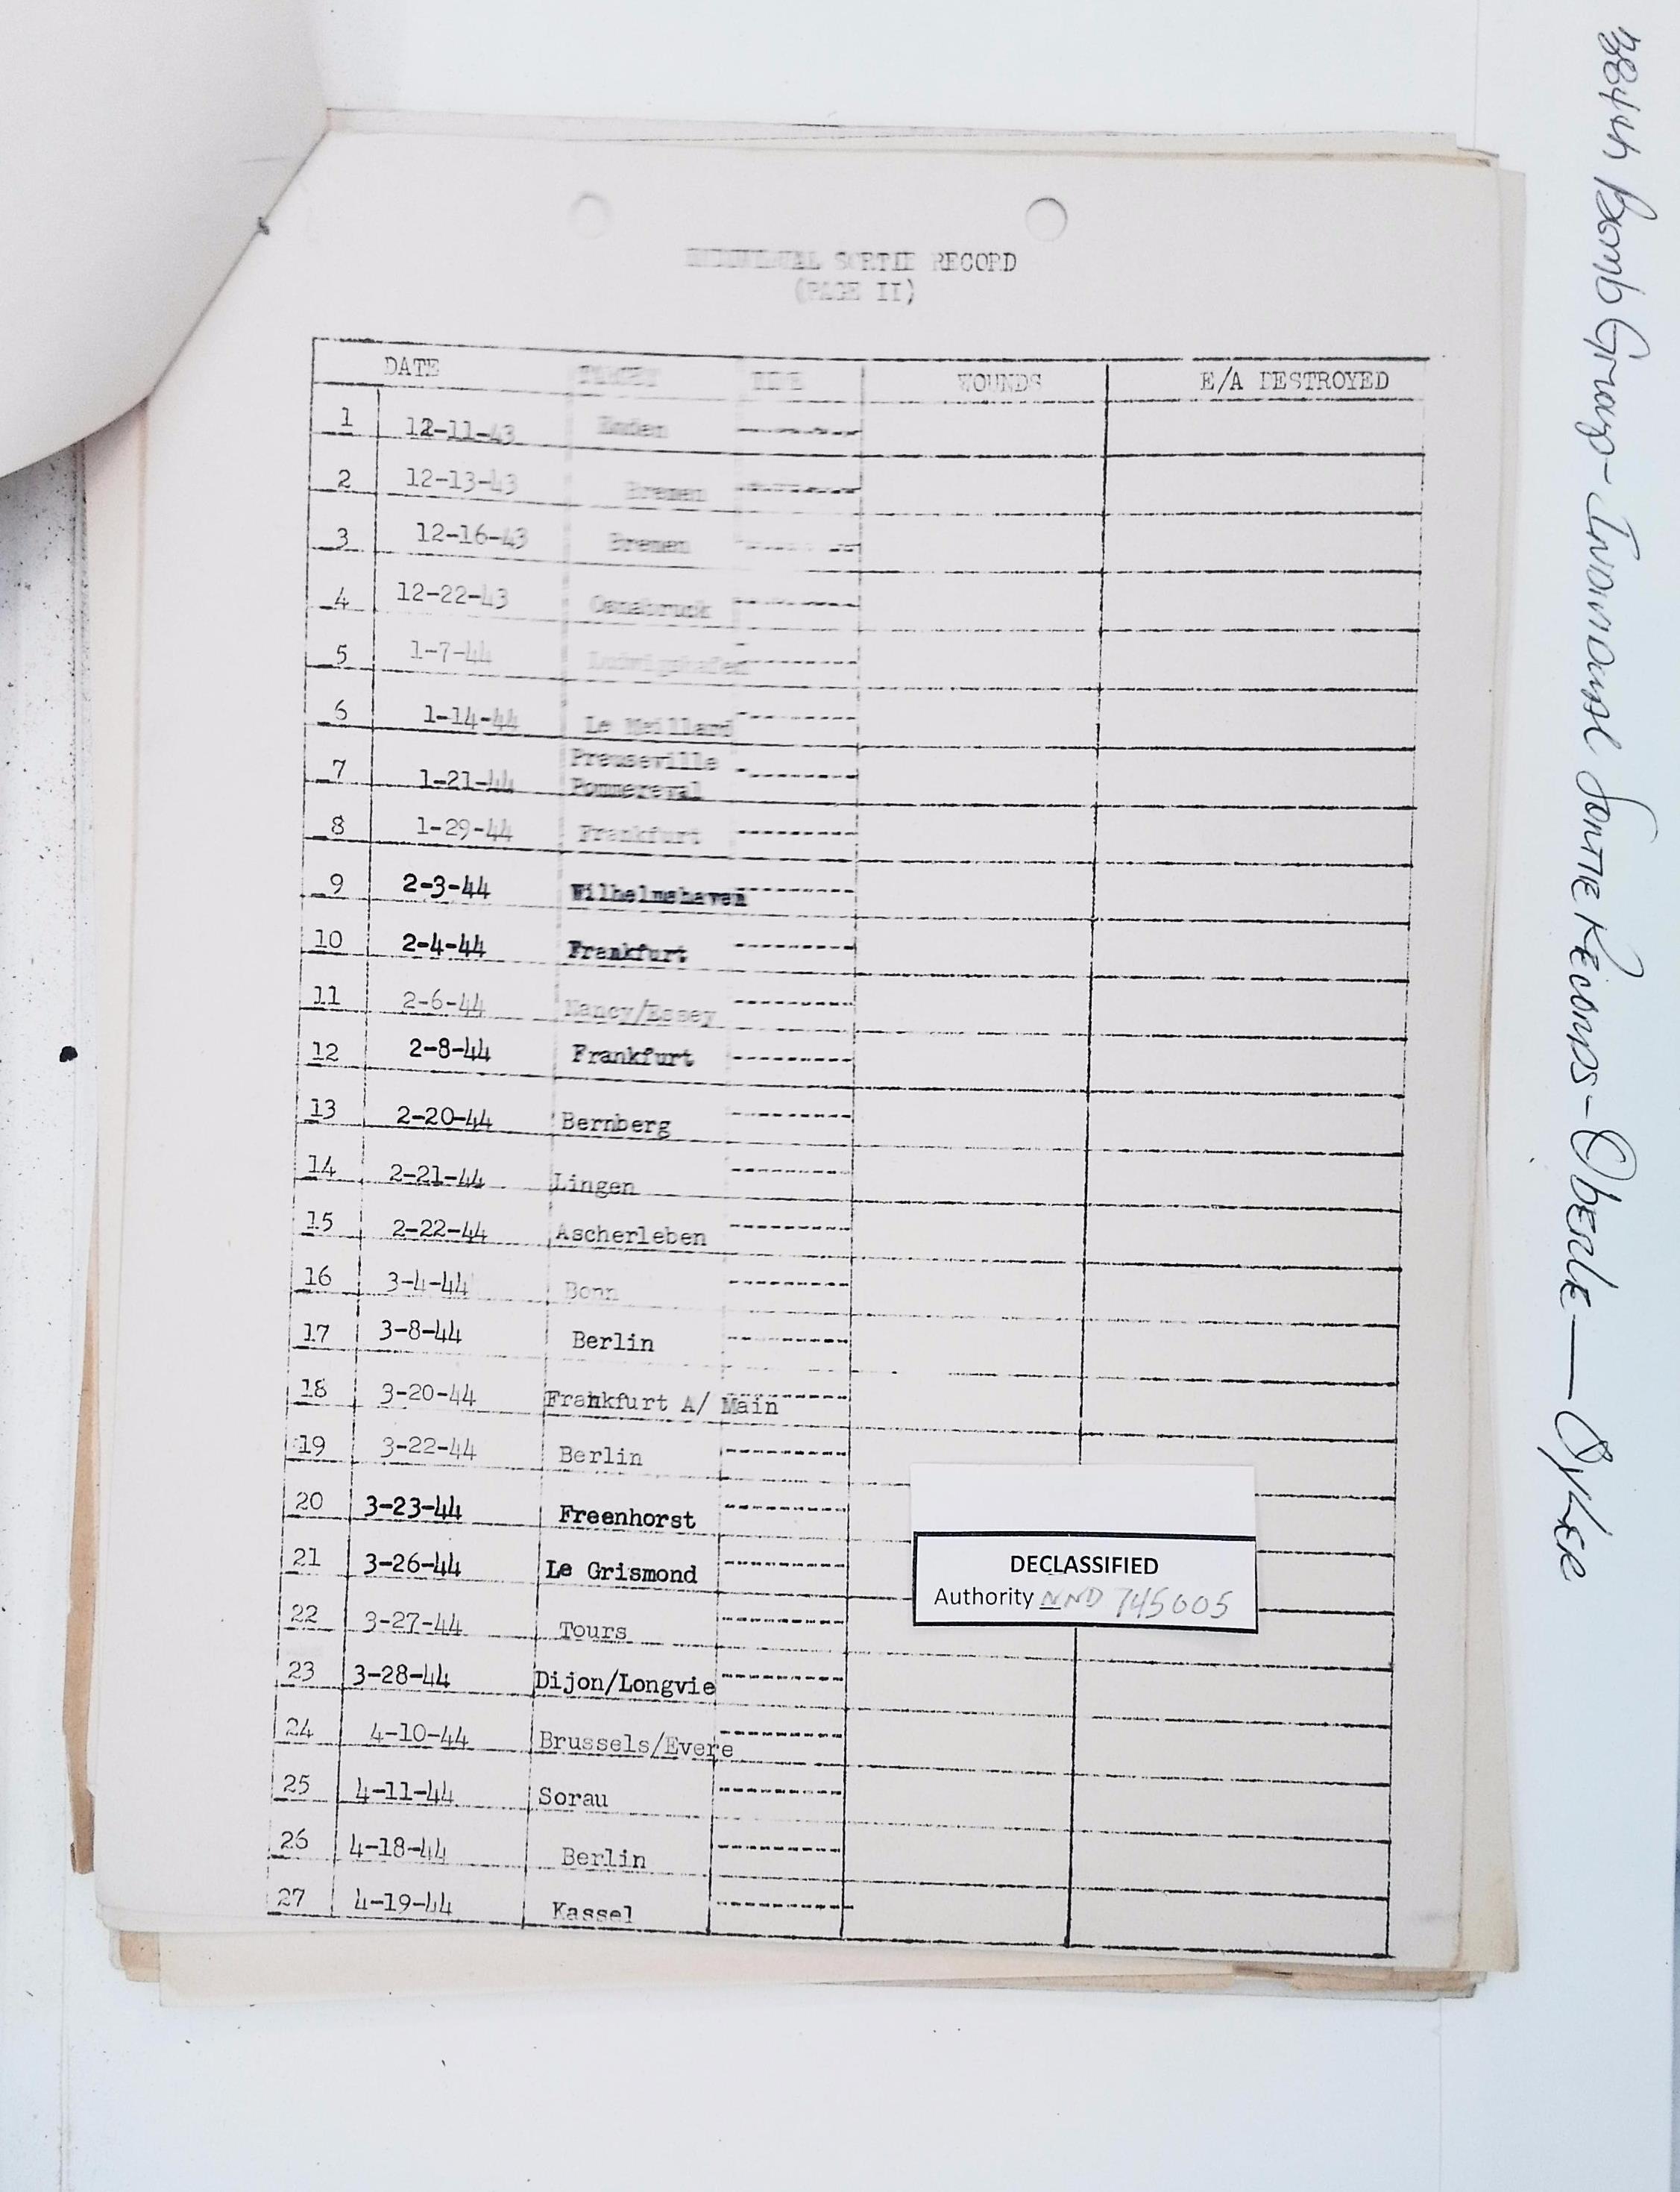 INDIVIDUAL SORTIE RECORD
(PAGE II)
DATE TARGET WOUNDS E/A DESTROYED
1 12-11-43 Emden
2 12-13-43 Bremen
3 12-16-43 Bremen
4 12-22-43 Osnabruck
5 1-7-44 Ludwigshafen
6 1-14-44 Le Meillard
7 1-21-44 Preuseville
Pommereval
8 1-29-44 Frankfurt
9 2-3-44 Wilhelmshaven
10 2-4-44 Frankfurt
11 2-6-44 Nancy/Essey
12 2-8-44 Frankfurt
13 2-20-44 Bernberg
14 2-21-44 Lingen
15 2-22-44 Ascherleben
16 3-4-44 Bonn
17 3-8-44 Berlin
18 3-20-44 Frankfurt A/ Main
19 3-22-44 Berlin
20 3-23-44 Freenhorst
21 3-26-44 Le Grismond
22 3-27-44 Tours
23 3-28-44 Dijon/Longvie
24 4-10-44 Brussels/Evere
25 4-11-44 Sorau
26 4-18-44 Berlin
27 4-19-44 Kassel
DECLASSIFIED
Authority NND 745005
384th Bomb Group - Individual Sortie Records - Oberle — Oyler